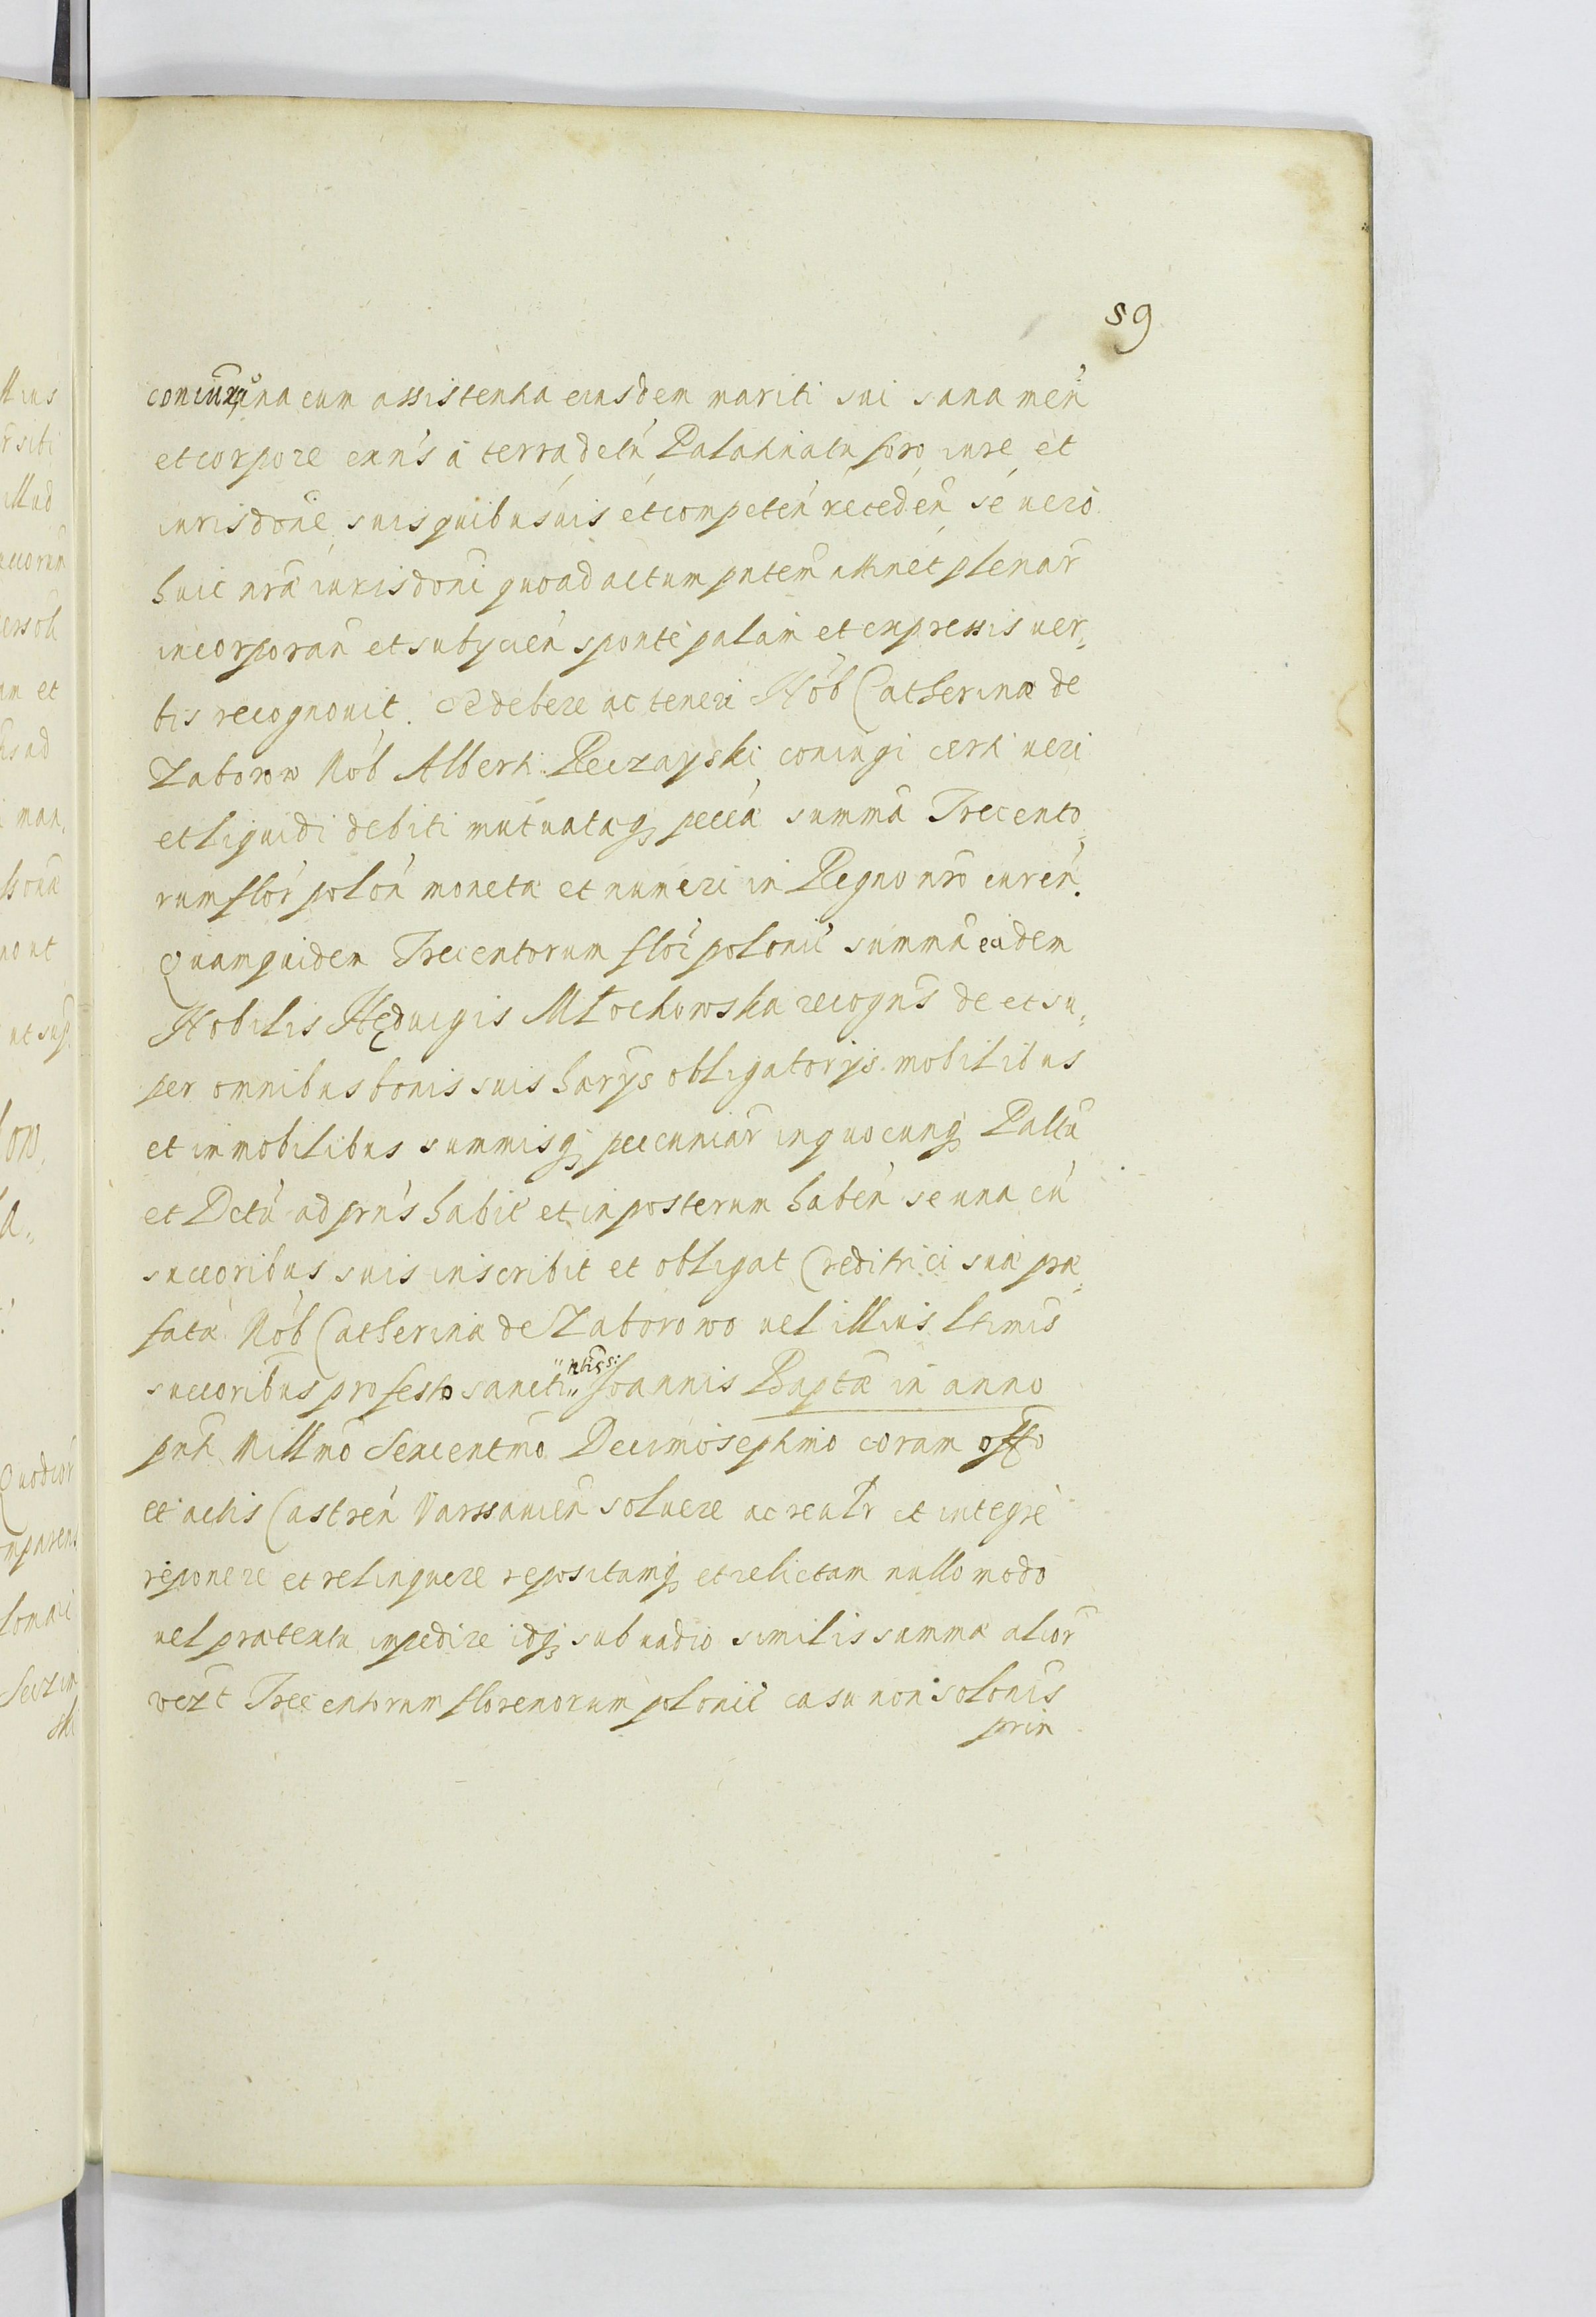 59
coniunx una cum assistentia eiusdem mariti sui sana men̄
et corpore exn̄s á terra dctū Palatinatu foro iure et
iurisdōne suis quibusuis et competeń reced́eń se vero
huic nrǣ iurisdōni quoad actum pn̄tem attinet plenar̄
incorporań et subijcień sponté palam et expressis ver„
bis recognouit. Se debere ac teneri Nob́ Catherinæ de
Zaborow Nob́ Alberti Reczayski coniugi certi veri
et liquidi debiti mutuatæq; peccæ summā Trecento„
rum flor̄ poloń monetæ et numeri in Regno nrō curēn.
Quamquidem Trecentorum flor̄ polonić summā eadem
Nobilis Hęduigis Młochowska recogn̄s de et su„
per omnibus bonis suis hærijs obligatorijs mobilibus
et immobilibus summisq; pecuniar̄ inquocunq; Pallū
et Dctū ad prn̄s habit́ et in posterum habeń se una cū
succoribus suis inscribit et obligat Creditrici suæ præ„
fatæ Nob́ Catherinæ de Zaborowo vel illius ltimis
succoribus pro festo sancti Joannis Baptæ in anno
pn̄ti Millmō Sexcentmō Decimoseptimo coram offo
et actis Castreń Varssauień soluere ac realr̄ et integré
reponere et relinquere repositamq; et relictam nullo modo
vel prætextu impedire idq; sub vadio similis summæ alior̄
Trecentorum florenorum polonić casu non solonis
prin